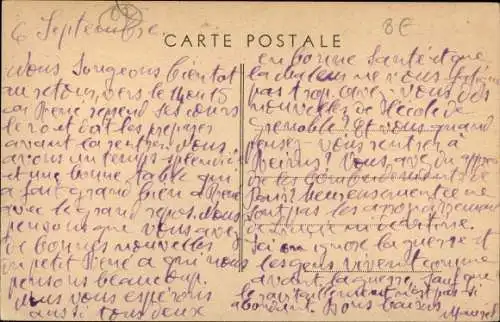 6 Septembre
8€
CARTE POSTALE
Nous songeons bientôt
au retour, vers le 14 ou 15
car René reprend ses cours
le 20 et doit les préparer
avant la rentrée. Nous
avions un temps splendide
et une bonne table qui
a fait grand bien à René
avec le grand repos. Nous
pensons que vous avez
de bonnes nouvelles
du petit René à qui nous
pensons beaucoup.
Nous vous espérons
aussi tous deux
en bonne santé et que
la chaleur ne vous
pas trop. Avez-vous des
nouvelles de l'école de
Grenoble? Et vous quand
pensez-vous rentrer à
? Vous avez
les bombardements de
Paris heureusement ce ne
sont pas les
de
Ici on ignore la guerre et
les gens vivent comme
avant la guerre, sauf que
le ravitaillement n'est pas si
abondant. Bons baisers